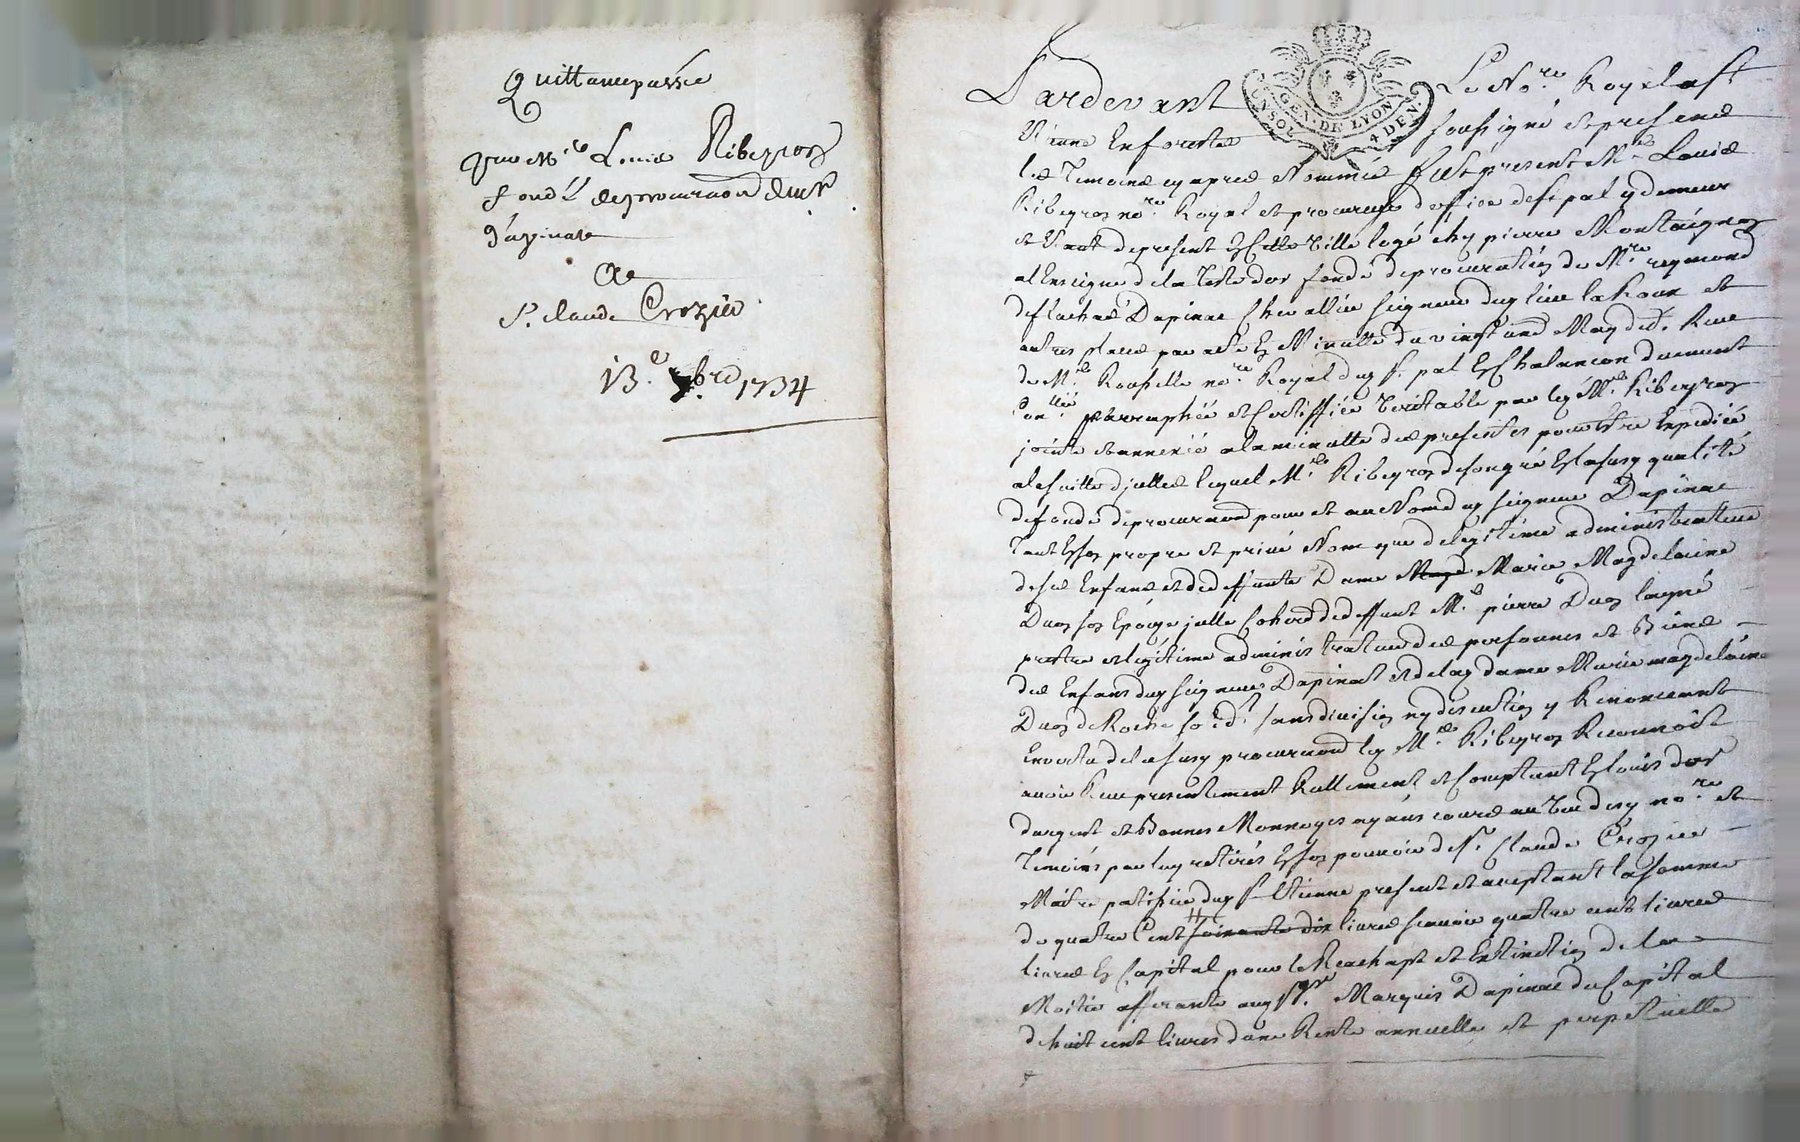 Quittance passée
par Me Louis Ribeyron
fondé de procuration de mr
d'apinac
A
Sr. Claude Crozier
13.e xbre 1734
GEN. DE LYON
UN SOL 4 DEN.
Pardevant Le No.re Royal a St
Etienne En forest soussigné et presence
les Temoins cy apres Nommés fut present Me Louis
Ribeyron no.re Royal et procureur d'office de st pal y demeurt
et Etant de present En cette Ville logé chez pierre Montaignon
a l'Enseigne de la Teste dor fondé de procuration de M.re reymond
Dapinac Chevallier seigneur dud lieu la Roue et
autres places par acte En Minutte du vingt une May der. Reçue
de Me Rousselle no.re Royal dud st. pal En Chalancon duement
Con.llée parraphée et Certiffiée Veritable par led Me Ribeyron
jointe et annexée a la minutte des presentes pour Etre Expediée
a la suitte d'jcelles lequel Me Ribeyron de son gré En la susd qualité
de fondé de procuration pour et au Nom dud seigneur Dapinac
Tant En son propre et privé Nom que de legitime administrateur
de ses Enfans et de deffunte Dame Marie Magdelaine
Duon son Epouse jcelle Coher. de deffunt Me pierre Duon
pretre et legitime administrateur des personnes et Biens
des Enfans dud seigneur Dapinac et de lad dame Marie magdelaine
Duon de Roche sans division ny discution y Renonceant
En vertu de la susd procuration led Me Ribeyron Reconnoit
avoir Reçu presentement Reellement et Comptant En louis dor
dargent et Bonnes Monnoyes ayans cours au Veu desd no.re et
Temoins par luy retirés En son pouvoir de Sr. Claude Crozier
Maitre patissier dud St Etienne present et acceptant la somme
de quatre Cent soixante dix livres scavoir quatre cent livres
livres En Capital pour le Reachapt et Extinction de la
Moitié afferante aud sgr. Marquis Dapinac du Capital
de huit cent livres dune Rente annuelle et perpetuelle